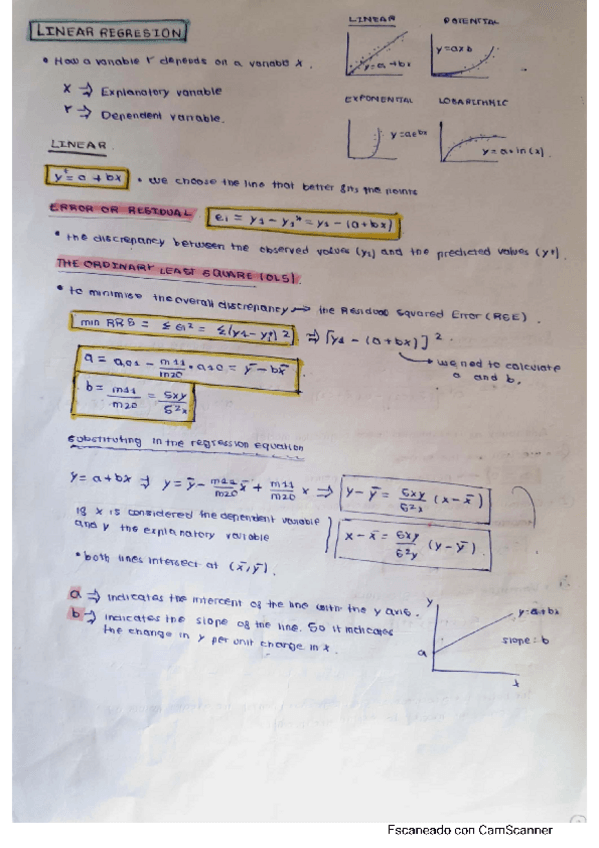 LINEAR REGRESION
LINEAR
y=a+bx
POTENTIAL
y=axb
• How a variable Y depends on a variable X.
X ⇒ Explanatory variable
Y ⇒ Dependent variable.
EXPONENTIAL
y=aebx
LOGARITHMIC
y=a+ln(x)
LINEAR
y* = a + bx • we choose the line that better fits the points
ERROR OR RESIDUAL ei = y1 - y1* = y1 - (a+bx)
• the discrepancy between the observed values (y1) and the predicted values (y*).
THE ORDINARY LEAST SQUARE (OLS).
• to minimise the overall discrepancy → the Residual Squared Error (RSE).
min RRS = Σ ei² = Σ(y1 - yi*)² ⇒ [y1 - (a+bx)]².
→ we need to calculate
a and b.
a = a01 - m11/m20 · a10 = ȳ - bx̄
b = m11/m20 = Sxy/S²x
Substituting in the regression equation
y = a+bx ⇒ y = ȳ - m11/m20 x̄ + m11/m20 x ⇒ y - ȳ = Sxy/S²x (x - x̄)
If X is considered the dependent variable
and y the explanatory variable
x - x̄ = Sxy/S²y (y - ȳ)
• both lines intersect at (x̄,ȳ).
a ⇒ indicates the intercent of the line with the y axis.
b ⇒ indicates the slope of the line. So it indicates
the change in y per unit change in x.
y
y=a+bx
slope = b
a
x
Escaneado con CamScanner